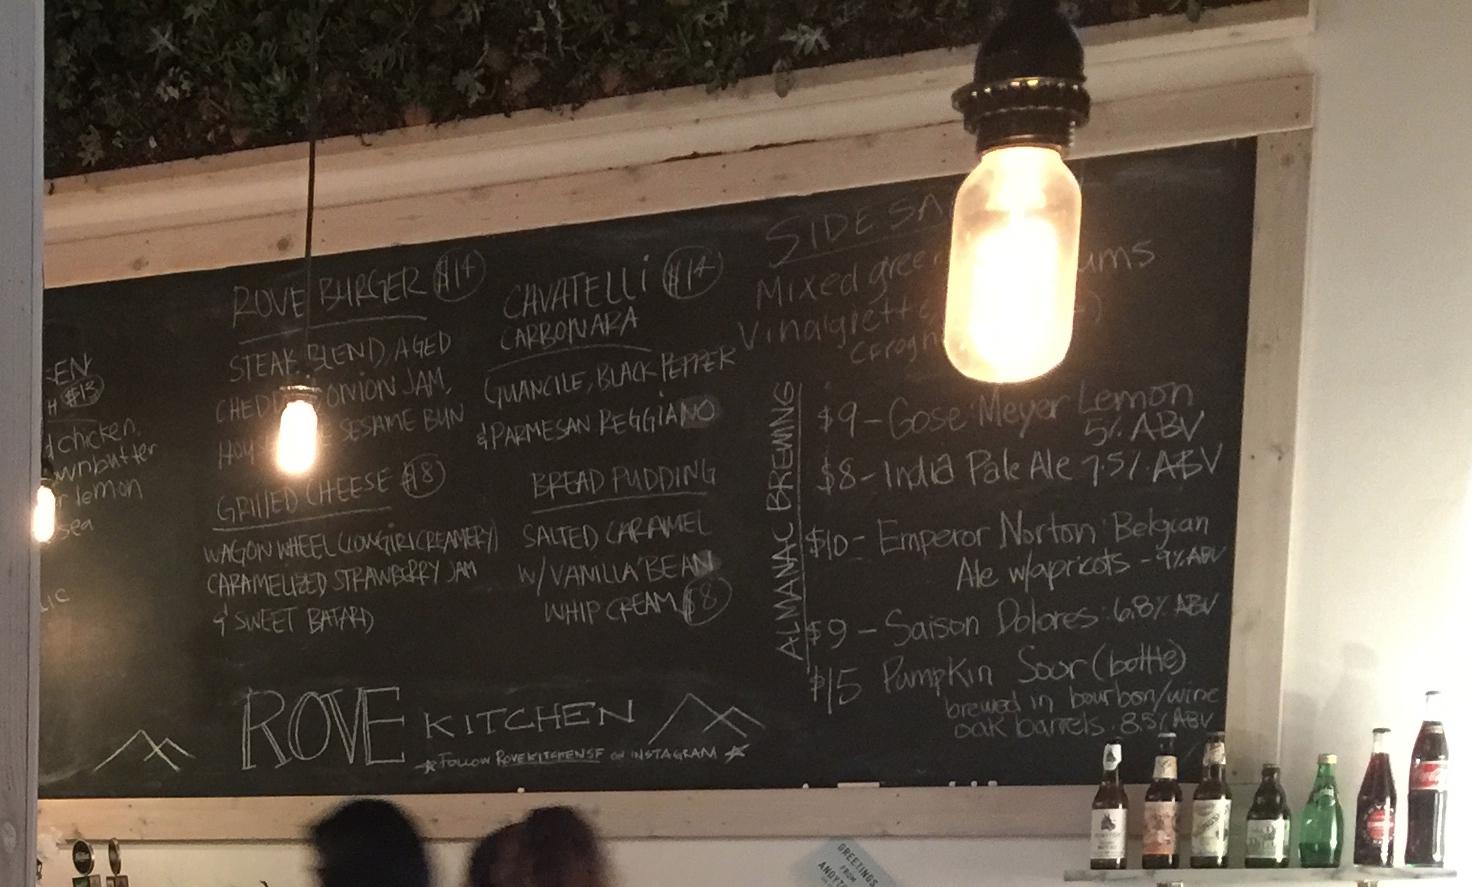 $13
chicken,
lemon
ROVE BURGER $14
STEAK BLEND, AGED
ONION JAM,
SESAME BUN
GRILLED CHEESE $8
WAGON WHEEL
CARAMELIZED STRAWBERRY JAM
& SWEET BATARD
CAVATELLI $14
CARBONARA
GUANCILE, BLACK PEPPER
& PARMESAN REGGIANO
BREAD PUDDING
SALTED CARAMEL
W/ VANILLA BEAN
WHIP CREAM $8
SIDE
Mixed
ALMANAC BREWING
$9 - Gose: Meyer Lemon
5% ABV
$8 - India Pale Ale 7.5% ABV
$10 - Emperor Norton: Belgian
Ale w/apricots - 9% ABV
$9 - Saison Dolores: 6.8% ABV
$15 Pumpkin Sour (bottle)
brewed in bourbon/wine
oak barrels. 8.5% ABV
ROVE KITCHEN
FOLLOW ROVEKITCHENSF ON INSTAGRAM
GREETINGS
FROM